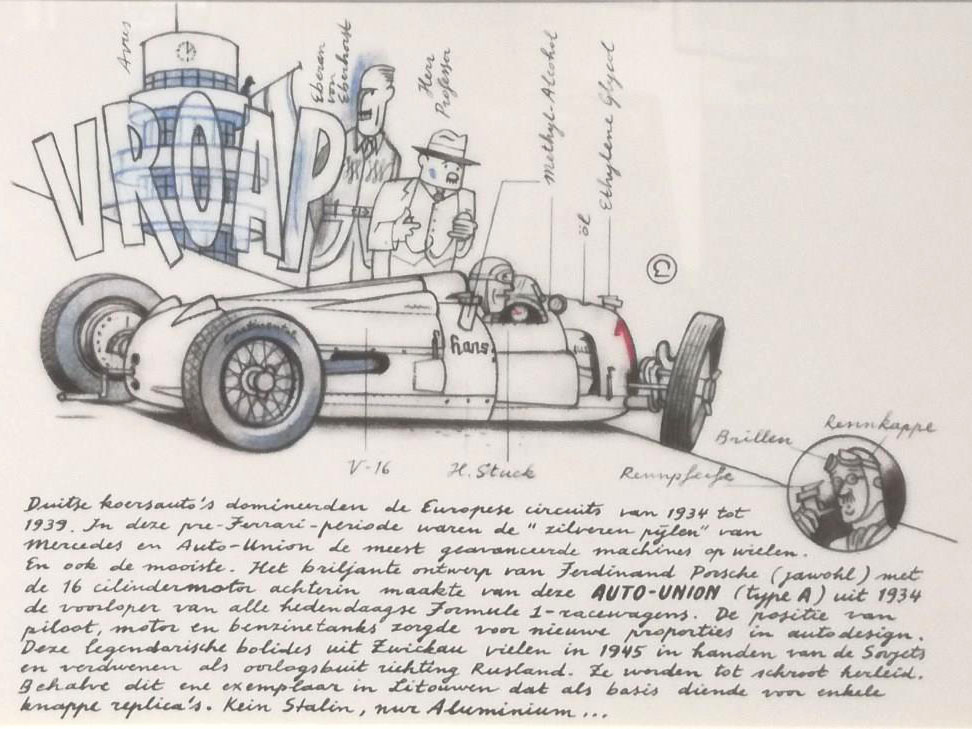 Avus
Eberan
von
Eberhorst
Herr
Professor
Methyl-Alcohol
öl
Ethylene Glycol
VROAP
Continental
hans
V-16
H. Stuck
Rennpfeife
Brillen
Rennkappe
Duitse koersauto's domineerden de Europese circuits van 1934 tot
1939. In deze pre-Ferrari-periode waren de "zilveren pijlen" van
Mercedes en Auto-Union de meest geavanceerde machines op wielen.
En ook de mooiste. Het briljante ontwerp van Ferdinand Porsche (jawohl) met
de 16 cilindermotor achterin maakte van deze AUTO-UNION (type A) uit 1934
de voorloper van alle hedendaagse Formule 1-racewagens. De positie van
piloot, motor en benzinetanks zorgde voor nieuwe proporties in autodesign.
Deze legendarische bolides uit Zwickau vielen in 1945 in handen van de Sovjets
en verdwenen als oorlogsbuit richting Rusland. Ze worden tot schroot herleid.
Behalve dit ene exemplaar in Litouwen dat als basis diende voor enkele
knappe replica's. Kein Stalin, nur Aluminium...